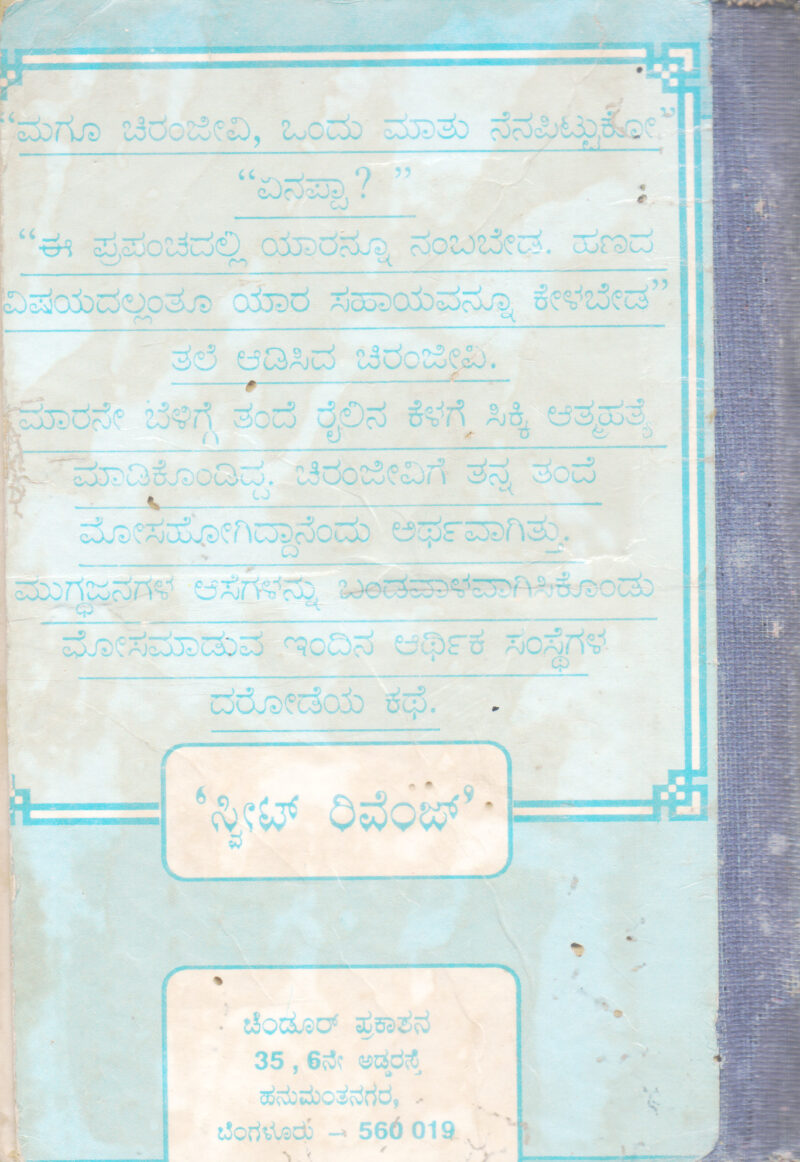 “ಮಗೂ ಚಿರಂಜೀವಿ, ಒಂದು ಮಾತು ನೆನಪಿಟ್ಟುಕೋ”
“ಏನಪ್ಪಾ? ”
“ಈ ಪ್ರಪಂಚದಲ್ಲಿ ಯಾರನ್ನೂ ನಂಬಬೇಡ. ಹಣದ
ವಿಷಯದಲ್ಲಂತೂ ಯಾರ ಸಹಾಯವನ್ನೂ ಕೇಳಬೇಡ”
ತಲೆ ಆಡಿಸಿದ ಚಿರಂಜೀವಿ.
ಮಾರನೇ ಬೆಳಿಗ್ಗೆ ತಂದೆ ರೈಲಿನ ಕೆಳಗೆ ಸಿಕ್ಕಿ ಆತ್ಮಹತ್ಯೆ
ಮಾಡಿಕೊಂಡಿದ್ದ. ಚಿರಂಜೀವಿಗೆ ತನ್ನ ತಂದೆ
ಮೋಸಹೋಗಿದ್ದಾನೆಂದು ಅರ್ಥವಾಗಿತ್ತು.
ಮುಗ್ಧಜನಗಳ ಆಸೆಗಳನ್ನು ಬಂಡವಾಳವಾಗಿಸಿಕೊಂಡು
ಮೋಸಮಾಡುವ ಇಂದಿನ ಆರ್ಥಿಕ ಸಂಸ್ಥೆಗಳ
ದರೋಡೆಯ ಕಥೆ.
‘ಸ್ವೀಟ್ ರಿವೆಂಜ್’
ಚೆಂಡೂರ್ ಪ್ರಕಾಶನ
35 , 6ನೇ ಅಡ್ಡರಸ್ತೆ
ಹನುಮಂತನಗರ,
ಬೆಂಗಳೂರು – 560 019